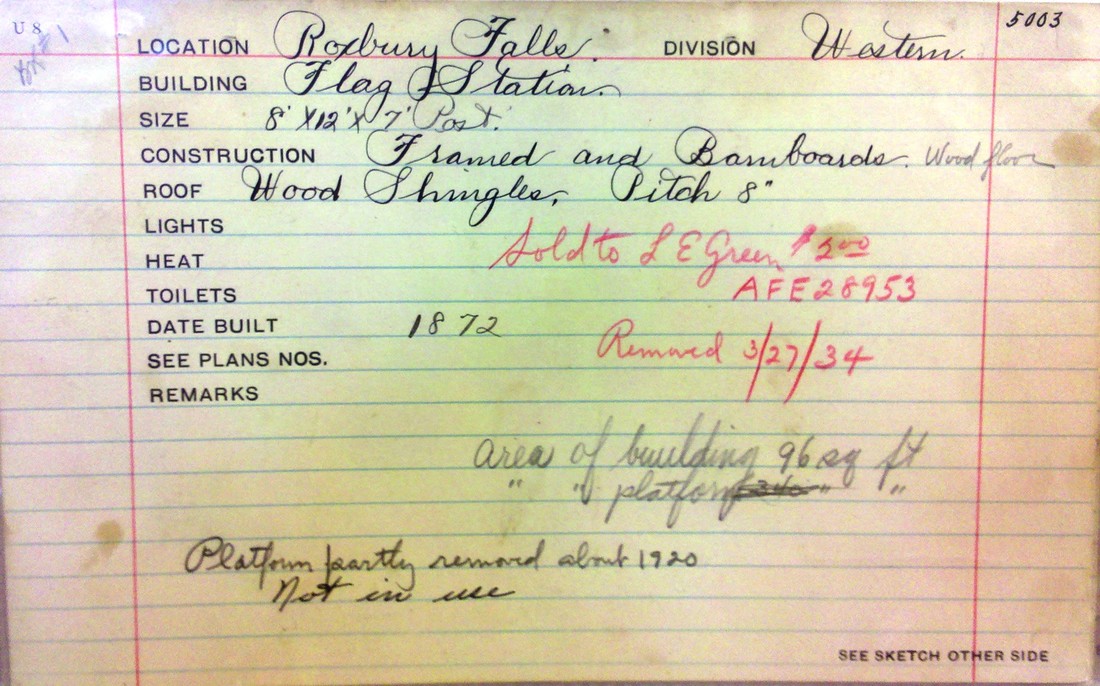 U 8
5003
LOCATION Roxbury Falls. DIVISION Western.
BUILDING Flag Station.
SIZE 8' X12' X 7' Post.
CONSTRUCTION Framed and Barnboards. Wood floor
ROOF Wood Shingles, Pitch 8"
LIGHTS
HEAT Sold to L E Green $2 00
TOILETS AFE 28953
DATE BUILT 1872
SEE PLANS NOS. Removed 3/27/34
REMARKS
area of building 96 sq ft
" " platform " "
Platform partly removed about 1920
Not in use
SEE SKETCH OTHER SIDE